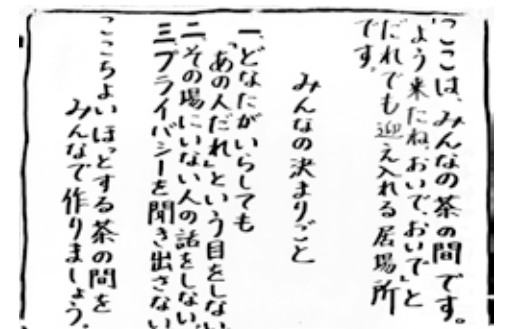 ここは、みんなの茶の間です。
「よう来たね、おいで、おいで」と
だれでも迎え入れる居場所
です。
みんなの決まりごと
一、どなたがいらしても
「あの人だれ」という目をしない
二、その場にいない人の話をしない
三、プライバシーを聞き出さない
ここちよいほっとする茶の間を
みんなで作りましょう。